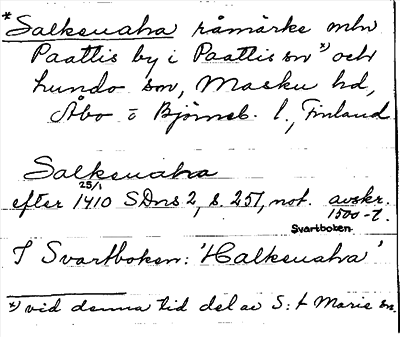 *Salkeuaha råmärke mln
Paattis by i Paattis sn *) och
Lundo sn, Masku hd,
Åbo o Björneb. l., Finland
Salkeuaha
efter 25/1 1410 SDns 2, s. 251, not. avskr.
1500-t.
Svartboken
I Svartboken: 'Halkeuaha'
*) vid denna tid del av S:t Marie sn.